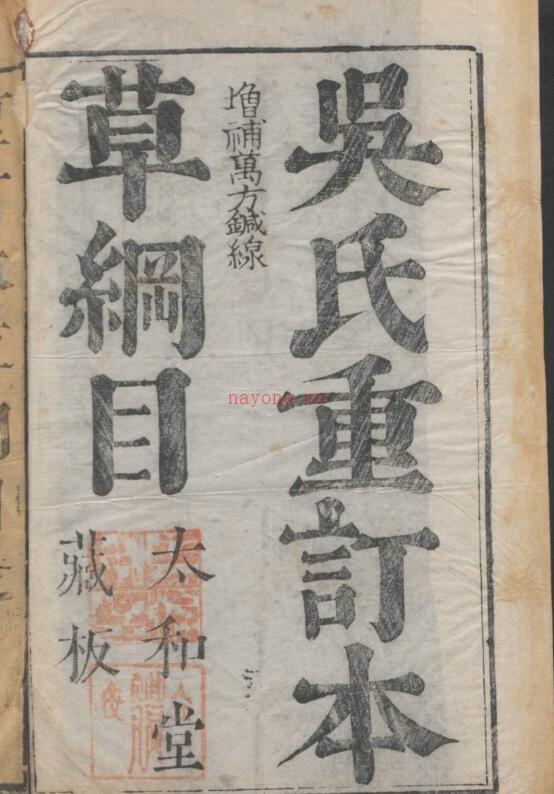 吳氏重訂本
增補萬方鍼線
草綱目
太和堂
藏板
nayona.cn